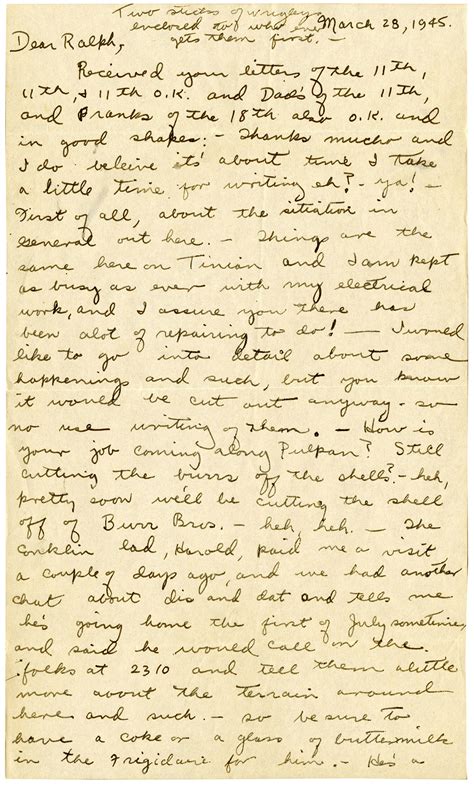 Two sticks of wrigleys
enclosed to who ever
gets them first. -
March 28, 1945.
Dear Ralph,
Received your letters of the 11th,
11th, & 11th O.K. and Dad's of the 11th,
and Franks of the 18th also O.K. and
in good shapes. - Thanks mucho and
I do beleive it's about time I take
a little time for writing eh? - ya! -
First of all, about the sitiation in
general out here. - Things are the
same here on Tinian and I am kept
as busy as ever with my electrical
work, and I assure you there has
been alot of repairing to do! - I would
like to go into detail about some
happenings and such, but you know
it would be cut out anyway - so
no use writing of them. - How is
your job coming along Pulpan? Still
cutting the burrs off the shells? - heh,
pretty soon we'll be cutting the shell
off of Burr Bros. - heh, heh. - The
Conklin lad, Harold, paid me a visit
a couple of days ago, and we had another
chat about dis and dat and tells me
he's going home the first of July sometime,
and said he would call on the
folks at 2310 and tell them a little
more about the terrain around
here and such. - so be sure to
have a coke or a glass of buttermilk
in the Frigidair for him. - He's a